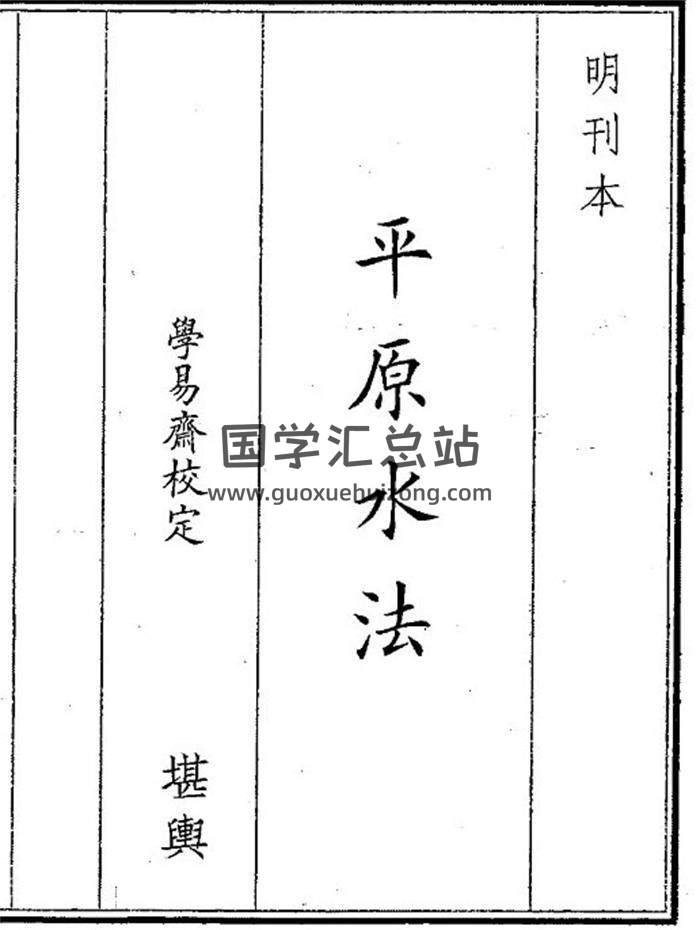 明刊本
平原水法
學易齋校定
堪輿
国学汇总站
www.guoxuehuizong.com